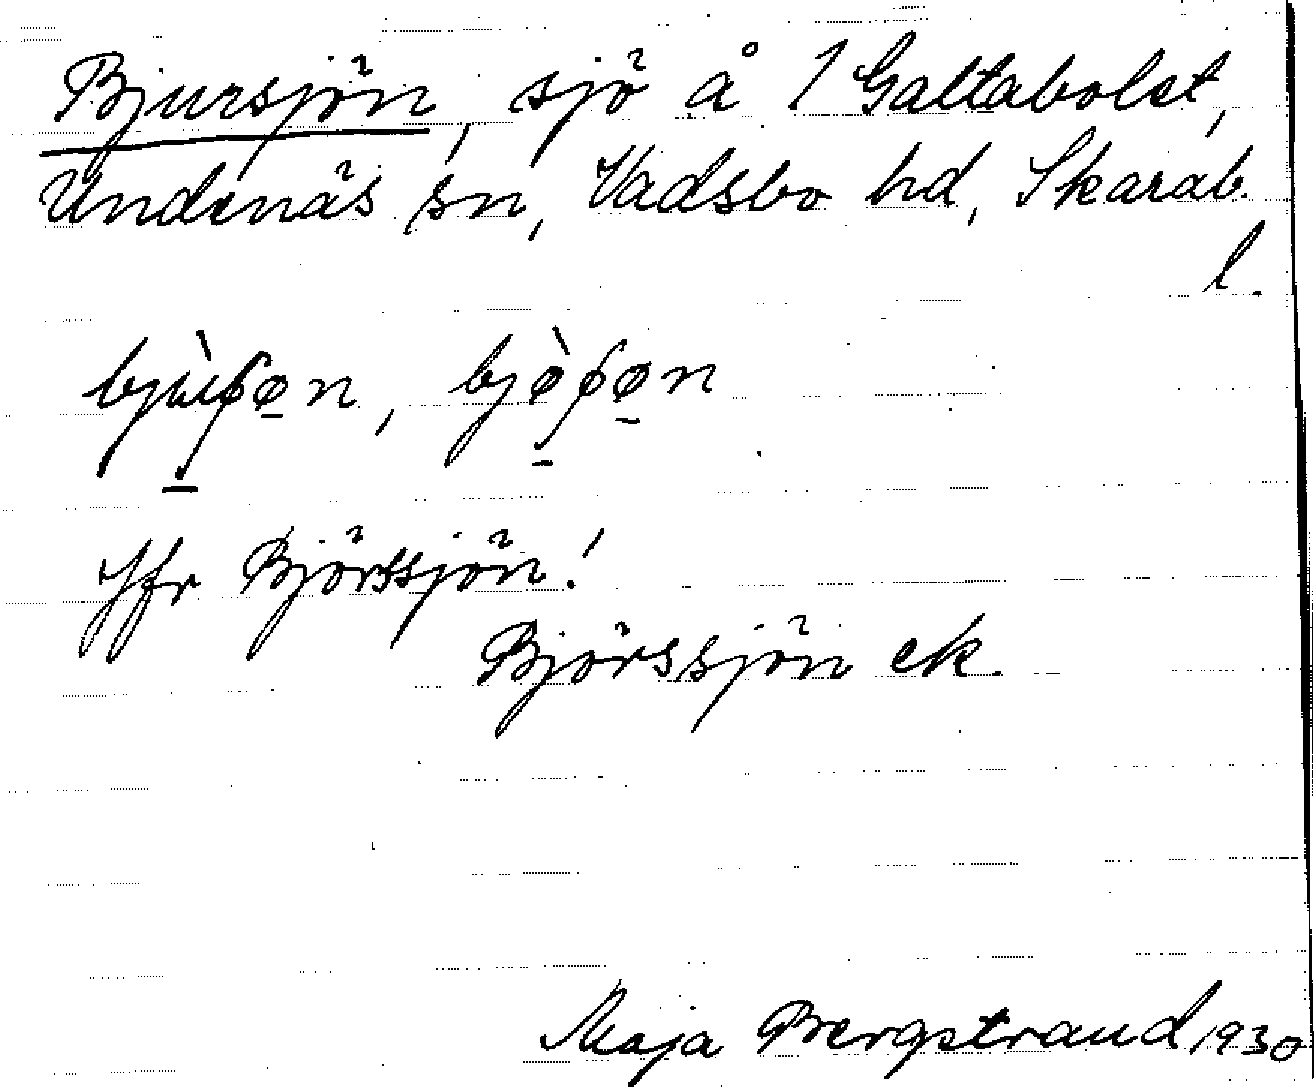 Bjursjön, sjö å 1 Galtabolet,
Undenäs sn, Vadsbo hd, Skarab.
l.
Jfr Björssjön!
Björssjön ek.
Maja Bergstrand 1930